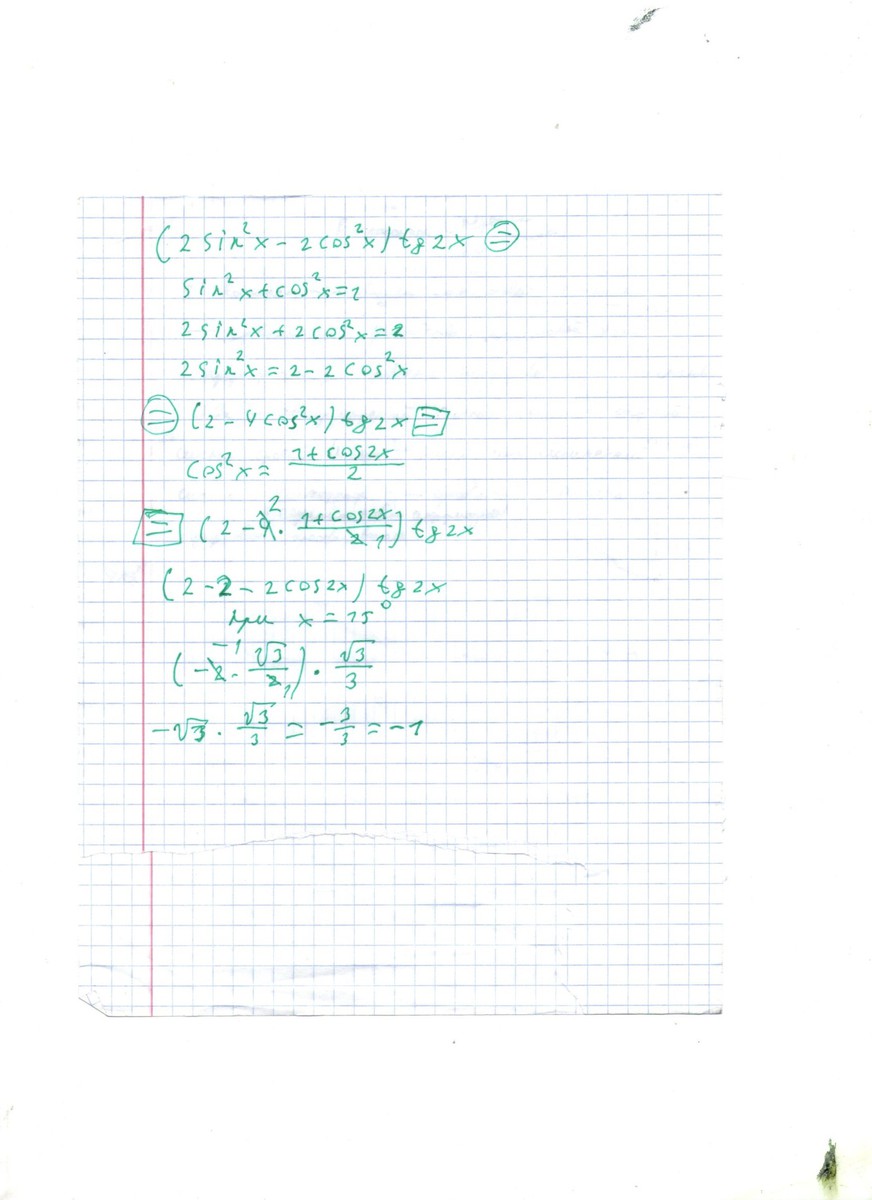 (2 sin²x - 2 cos²x) tg 2x ⊜
sin²x + cos²x = 1
2 sin²x + 2 cos²x = 2
2 sin²x = 2 - 2 cos²x
⊜ (2 - 4 cos²x) tg 2x [=]
cos²x = (1 + cos 2x)/2
[=] (2 - 4̸² · (1 + cos 2x)/2̸₁) tg 2x
(2 - 2 - 2 cos 2x) tg 2x
при x = 15°
(-2̸⁻¹ · √3/2̸₁) · √3/3
-√3 · √3/3 = -3/3 = -1